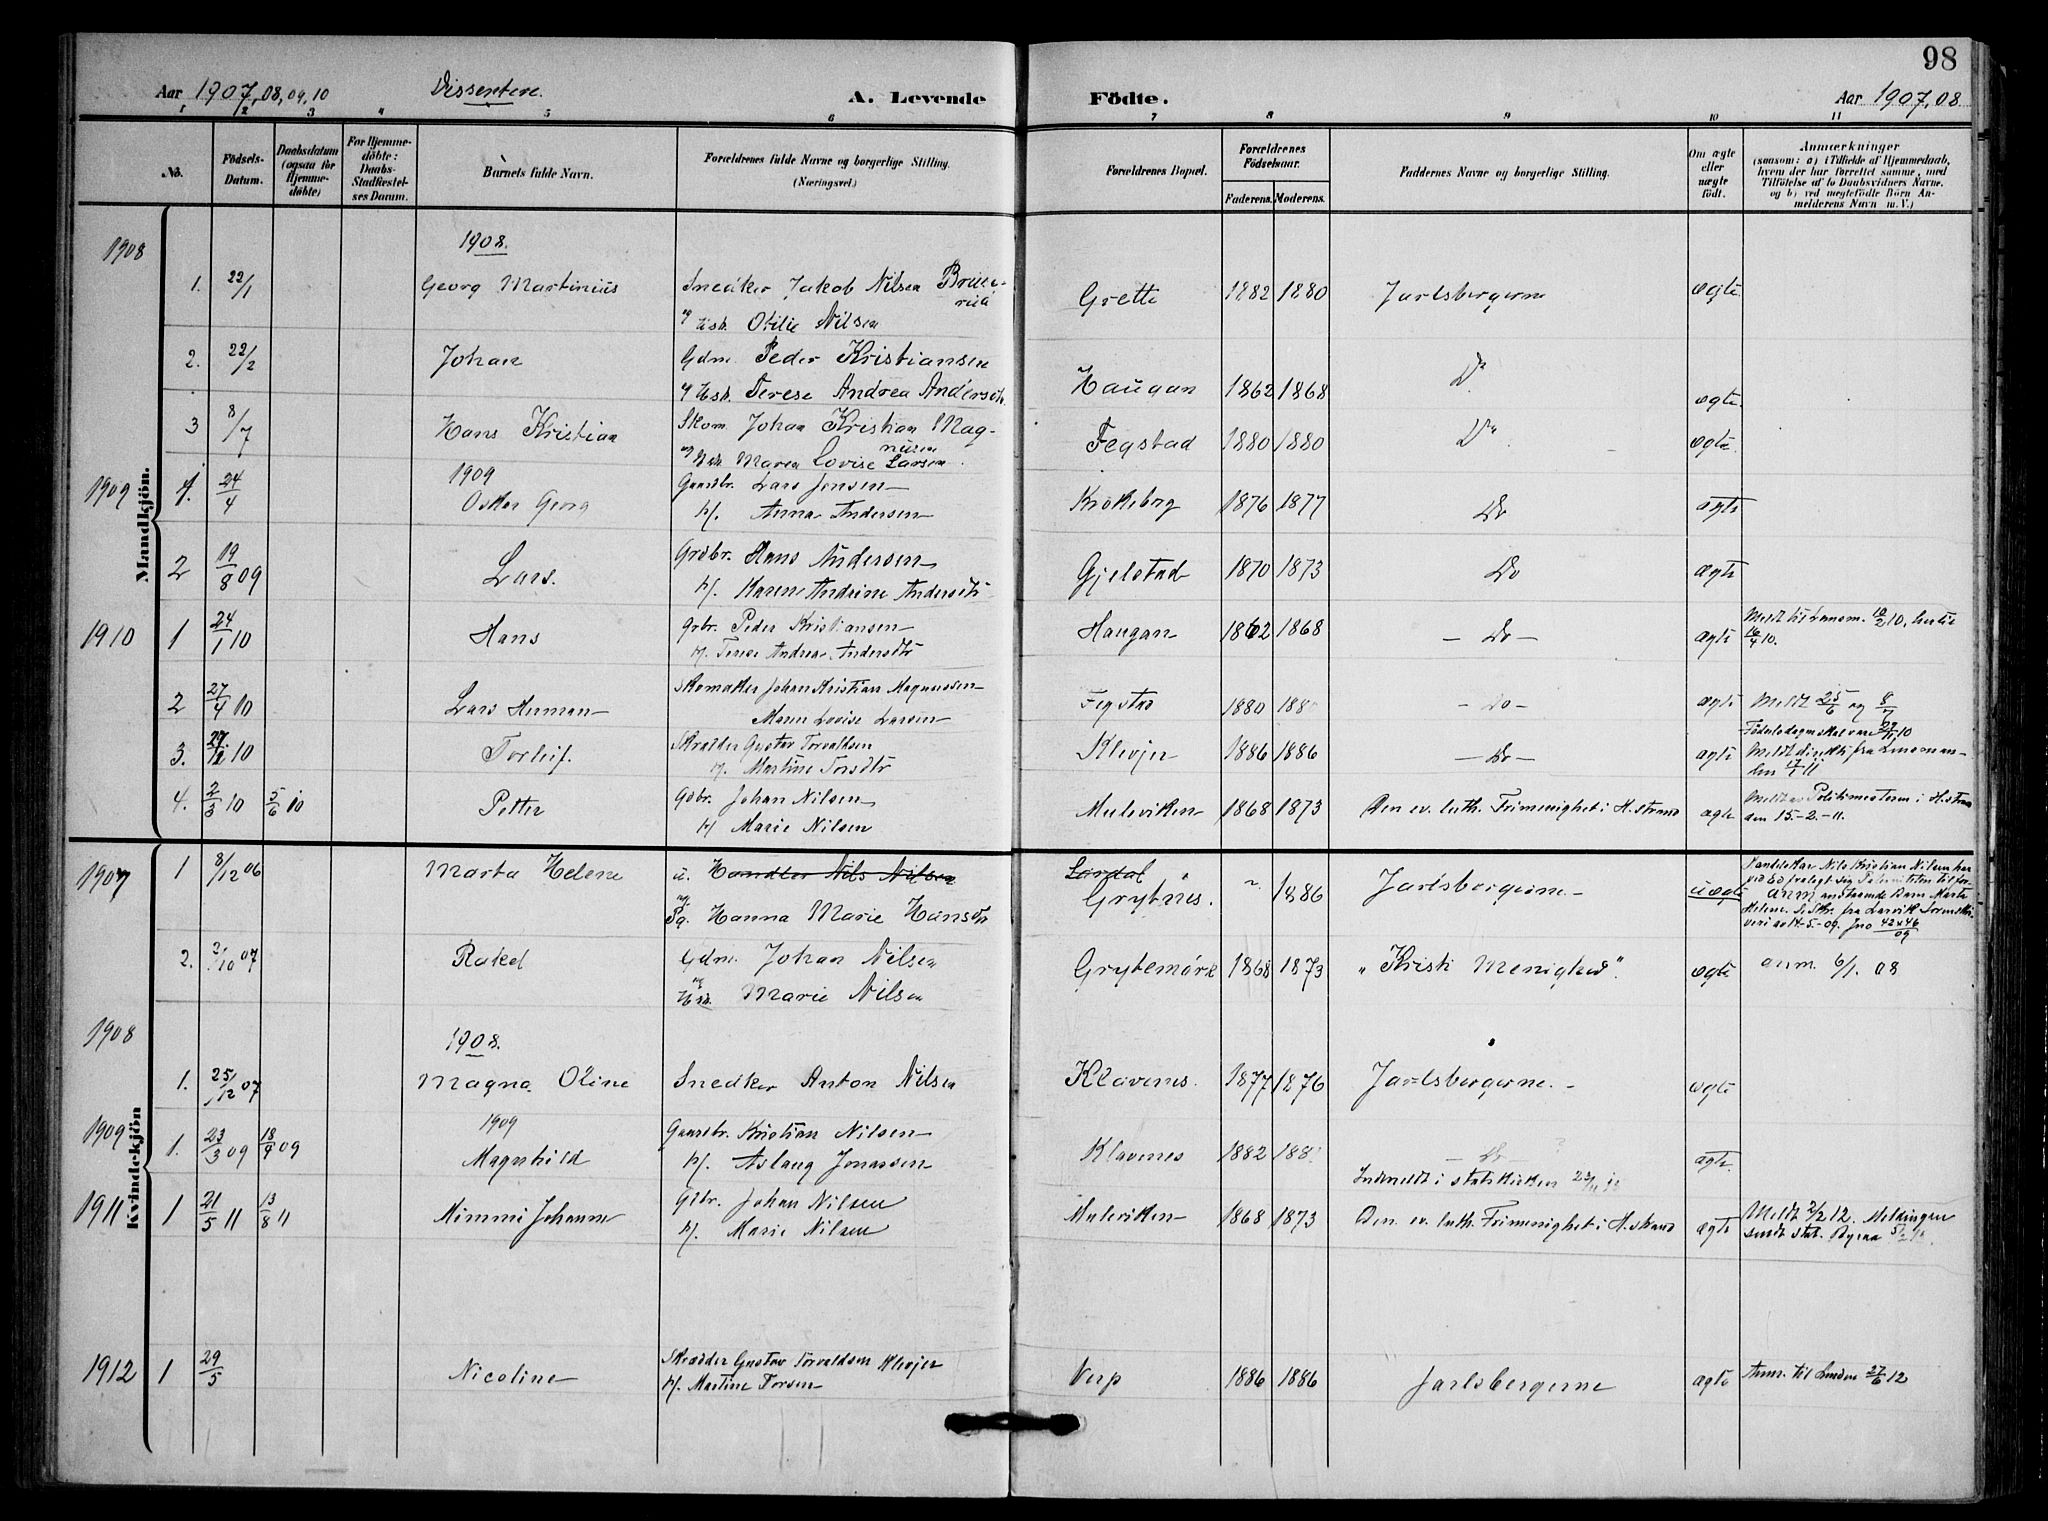 98
Aar 1907, 08, 09, 10 Dissentere. A. Levende Födte. Aar 1907, 08.
1 2 3 4 5 6 7 8 9 10 11
No. Födsels-Datum. Daabsdatum (ogsaa for Hjemmedöbte) For Hjemmedöbte: Daabs-Stadfæstelses Datum. Barnets fulde Navn. Forældrenes fulde Navne og borgerlige Stilling. (Næringsvei.) Forældrenes Bopæl. Forældrenes Födselsaar. Faderens. Moderens. Faddernes Navne og borgerlige Stilling. Om ægte eller uægte födt. Anmærkninger (saasom: a) i Tilfælde af Hjemmedaab, hvem der har forrettet samme, med Tilföielse af to Daabsvidners Navne, og b) ved uægtefödte Börn Anmelderens Navn m. V.)
Mandkjön.
1908 1908.
1. 22/1 Georg Martinius Snedker Jakob Nilsen Grette 1882 1880 Jarlsbergerne ægte
og Hsh. Otilie Nilsen
2. 22/2 Johan Gdm. Peder Kristiansen Haugan 1862 1868 Do ægte.
og Hsh. Terese Andrea Andersdtr.
3 8/7 Hans Kristian Skom. Johan Kristian Magnusen Fegstad 1880 1880 Do ægte
og Hsh. Maren Lovise Larsen.
1909 1909
1. 24/4 Oskar Georg Gaardbr. Lars Jensen Krokeborg 1876 1877 Do ægte
H. Anna Andersen
2 19/8 09 Lars. Grdbr. Hans Andersen Gjelstad 1870 1873 Do ægte
H. Karen Andrine Andersdtr
1910 1 24/1 10 Hans Grbr. Peder Kristiansen Haugan 1862 1868 - Do - ægte Meldt til Lensm. 10/2 10, hertil 16/4 10.
H. Terese Andrea Andersdtr
2 27/4 10 Lars Herman Skomaker Johan Kristian Magnussen Fegstad 1880 188 - Do - ægte Meldt 25/6 og 8/7
Maren Lovise Larsen
3. 10 Torleif. Skrædder Gustav Torvaldsen Klevjer 1886 1886 - Do - ægte Födselsdagen skal være 10
H. Martine Torsdtr Meldt direkte fra Lensmanden 17/1 11
4. 2/3 10 5/6 10 Petter Gdbr. Johan Nilsen Muleviken 1868 1873 Den ev. luth. Frimenighet i H.strand ægte Meldt av Politimesteren i H.strand den 15.-2.-11.
H. Marie Nilsen
Kvindekjön
1907 1 8/12 06 Marta Helene u. Handler Nils Nilsen Lardal Grytnes. " 1886 Jarlsbergerne - uægte
og Pg. Hanna Marie Hansdtr
Handelskar Nils Kristian Nilsen har ved Ed fralagt sig Paterniteten til foranstaaende Barn Marta Helene. Se Skr. fra Larvik Sorenskriveri av 14-5-09. Jno 42 x 46/09
anm
2. 2/10 07 Rakel Gdm. Johan Nilsen Grytemöre 1868 1873 „Kristi Menighed". ægte anm. 6/1. 08
og Hsh. Marie Nilsen
1908 1908.
1. 25/12 07 Magna Oline Snedker Anton Nilsen Klavenes. 1877 1876 Jarlsbergerne. - ægte
1909 1909
1. 23/3 09 18/9 09 Magnhild Gaardbr. Kristian Nilsen Klavenes 1882 188 - Do - ægte.
H. Aslaug Jonassen Indmeldt i statskirken
1911 1 21/5 11 13/8 11 Mimmi Johanne Gdbr. Johan Nilsen Muleviken 1868 1873 Den ev. luth. Frimenighet i H.strand ægte Meldt 2/2 12. Meldingen sendt Stat. Byraa
H. Marie Nilsen
1912 1 29/5 Nicoline Skrædder Gustav Torvaldsen Klevjer Verp 1886 1886 Jarlsbergerne ægte Anm. til Lensm 27/6 12
H. Martine Torsen